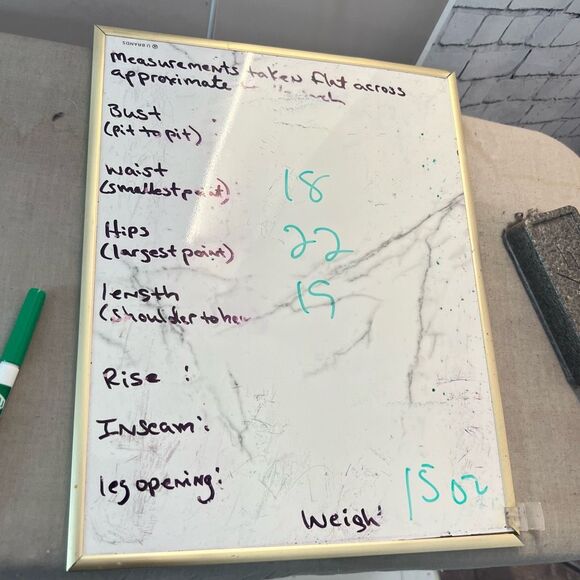 U BRANDS
Measurements taken flat across
approximate inch
Bust :
(pit to pit)
waist
(smallest point) 18
Hips 22
(largest point)
length 19
(shoulder to hem
Rise :
Inseam:
leg opening:
15 oz
Weigh